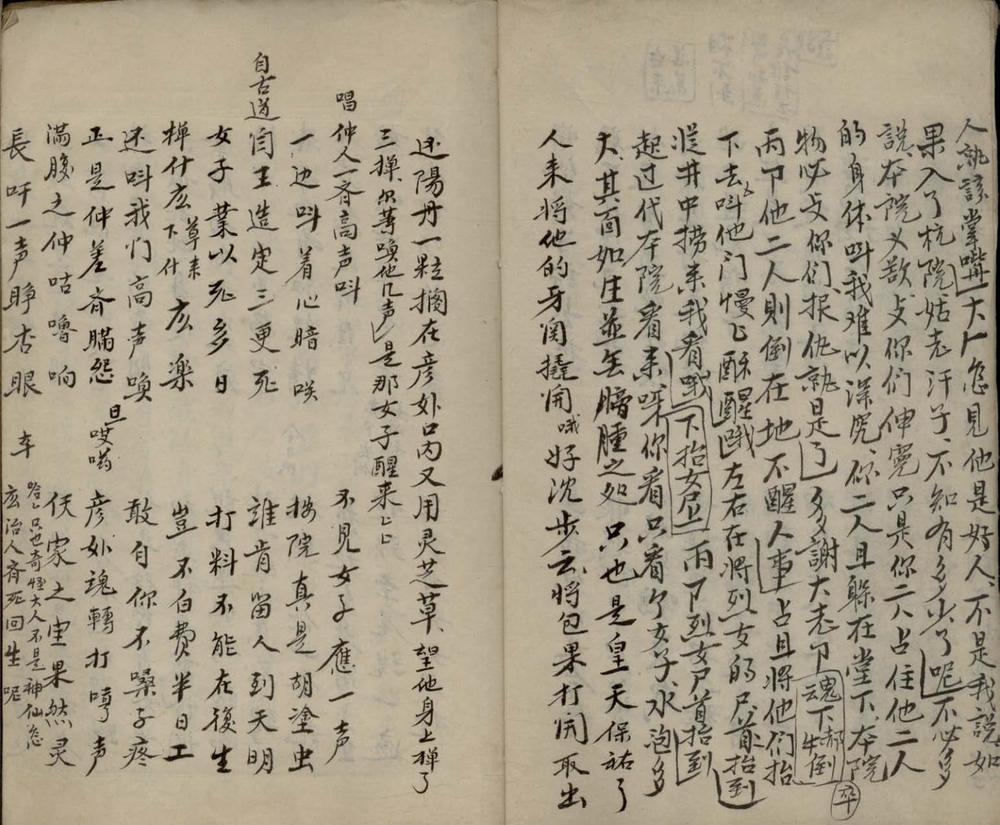 人孰該掌嘴大卜怎見他是好人不是我說如
果入了杭院姑老汗子不知有多少了呢不必多
說本院又欲文你们伸寃只是你二人占住他二人
的身体呌我难以深究你二人且躲在堂下本院
物必文你们报仇就是了多謝大老卩魂下郝牛倒卒
丙卩他二人則倒在地不醒人事占且將他们抬
下去呌他门慢匕酥醒哦左右在將烈女的尸首抬到
従井中捞来我看哦下抬女尸上丙卩烈女尸首抬到
起过代本院看来呀你看只看个女子水泡多
大其面如生並無膀腫之処只也是皇天保祐了
人来將他的牙関撬開哦好沈步云將包果打開取出
还陽丹一粒搁在彦処口内又用灵芝草望他身上撣了
三撣尔等喚他几声是那女子醒来上上
唱仲人一斉高声呌 不見女子應一声
一边呌着心暗咲 按院真是胡塗虫
自古道閆王造定三更死 誰肯留人到天明
女子業以死多日 打料不能在復生
撣什庅草来下什庅樂 豈不白費半日工
还呌我们高声喚 敢自你不嗓子疼
正是仲差斉瞞怨 旦哎哟 彦処魂轉打哼声
滿腹之仲咕嚕响 伏家之宝果然灵
長吁一声睁杏眼 卒 哈匕只也奇怪大人不是神仙怎
庅治人斉死回生呢